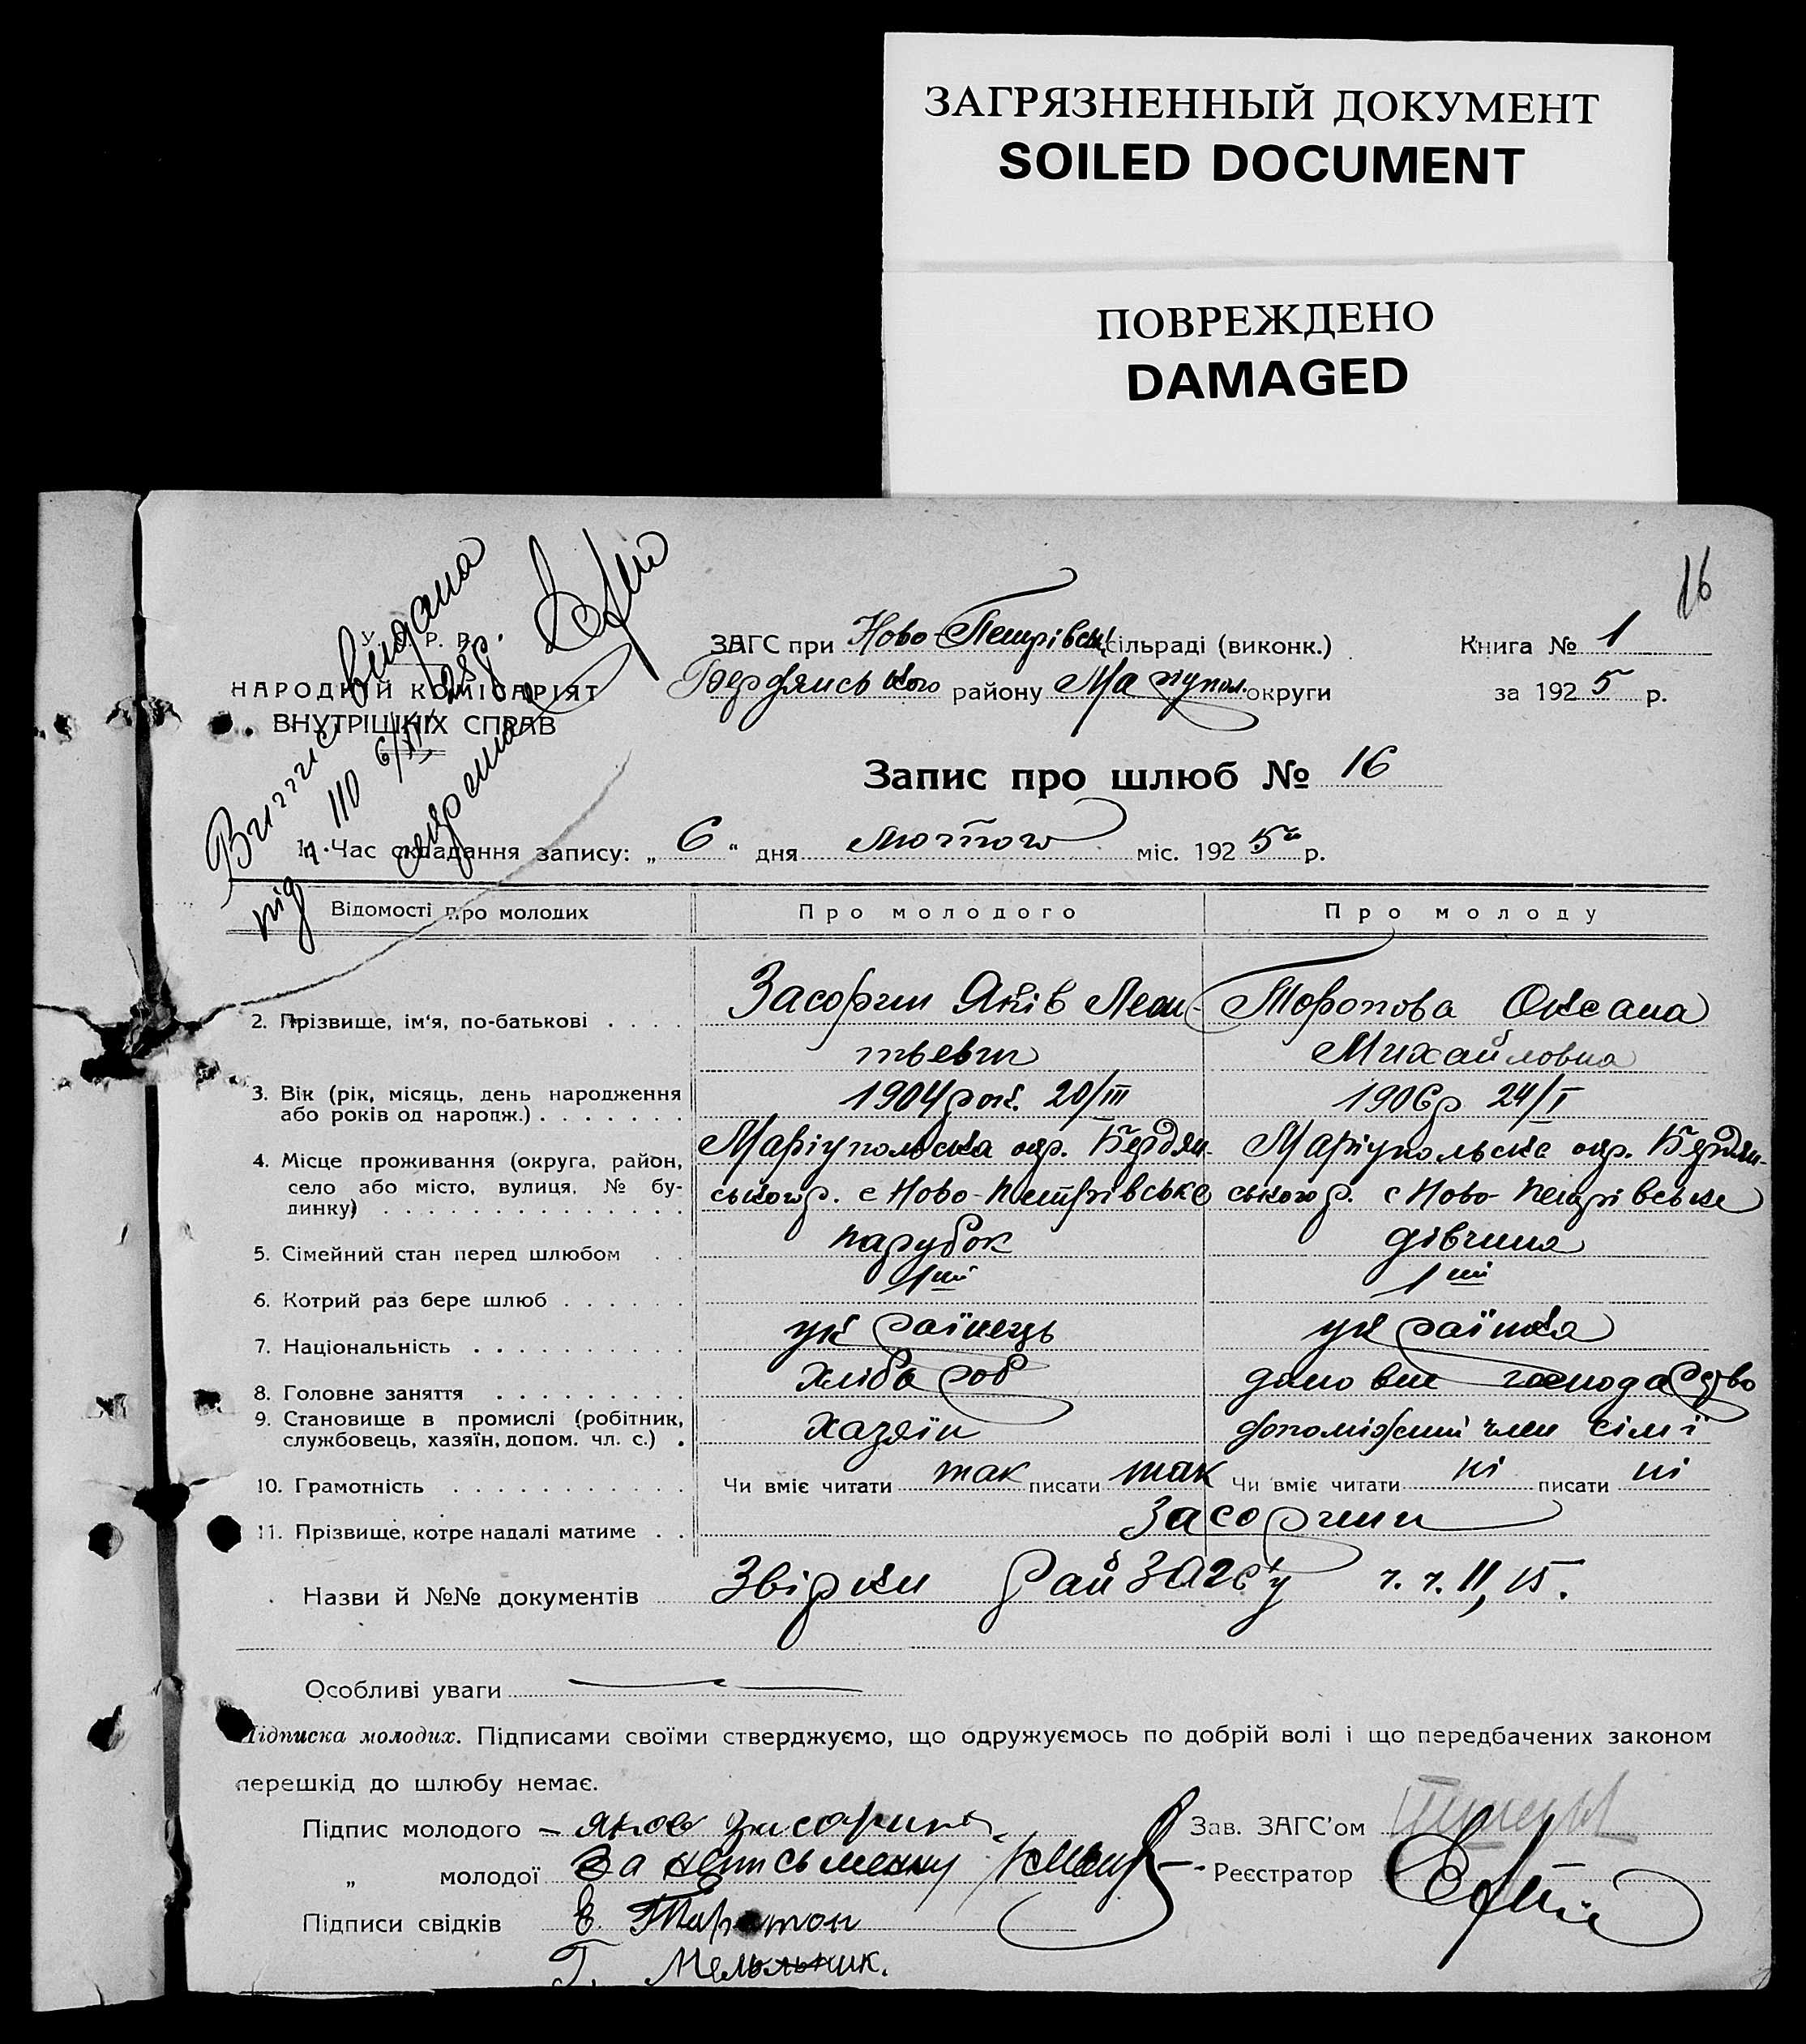 ЗАГРЯЗНЕННЫЙ ДОКУМЕНТ
SOILED DOCUMENT
ПОВРЕЖДЕНО
DAMAGED
16
У. С. Р. Р.
НАРОДНІЙ КОМІСАРІЯТ
ВНУТРІШНІХ СПРАВ
Виппс видана
під ч. 110 6/ІІ 25р.
ЗАГС при Ново-Петрівськ сільраді (виконк.)
Бердянського району Маріупол. округи
Книга № 1
за 1925 р.
Запис про шлюб № 16
1. Час складання запису: „ 6 “ дня лютого міс. 1925 р.
Відомості про молодих Про молодого Про молоду
2. Прізвище, ім'я, по-батькові . . . . Засорин Яків Леон- Торопова Оксана
тьевич Михайловна
3. Вік (рік, місяць, день народження
або років од народж.) . . . . . . . 1904 рок. 20/III 1906р 24/I
4. Місце проживання (округа, район, Маріупольска окр. Бердян- Маріупольске окр. Бердян-
село або місто, вулиця, № бу- ського р. с Ново-Петрівське ського р. с Ново-Петрівське
динку) . . . . . . . . . . . . . .
5. Сімейний стан перед шлюбом . . парубок дівчина
6. Котрий раз бере шлюб . . . . . . 1ий 1ий
7. Національність . . . . . . . . . . українець українка
8. Головне заняття . . . . . . . . . хлібороб домовне господарство
9. Становище в промислі (робітник,
службовець, хазяїн, допом. чл. с.) . хазяїн допоміжний член сімї
10. Грамотність . . . . . . . . . . . Чи вміє читати так писати так Чи вміє читати ні писати ні
11. Прізвище, котре надалі матиме . . Засорини
Назви й №№ документів Звірки райЗАГС'у ч. ч. 11, 15.
Особливі уваги
Підписка молодих. Підписами своїми стверджуємо, що одружуємось по добрій волі і що передбачених законом
перешкід до шлюбу немає.
Підпис молодого – Яков Засорин Зав. ЗАГС'ом
„ молодої За неписьменну Реєстратор
Підписи свідків Е.
Г. Мельник.